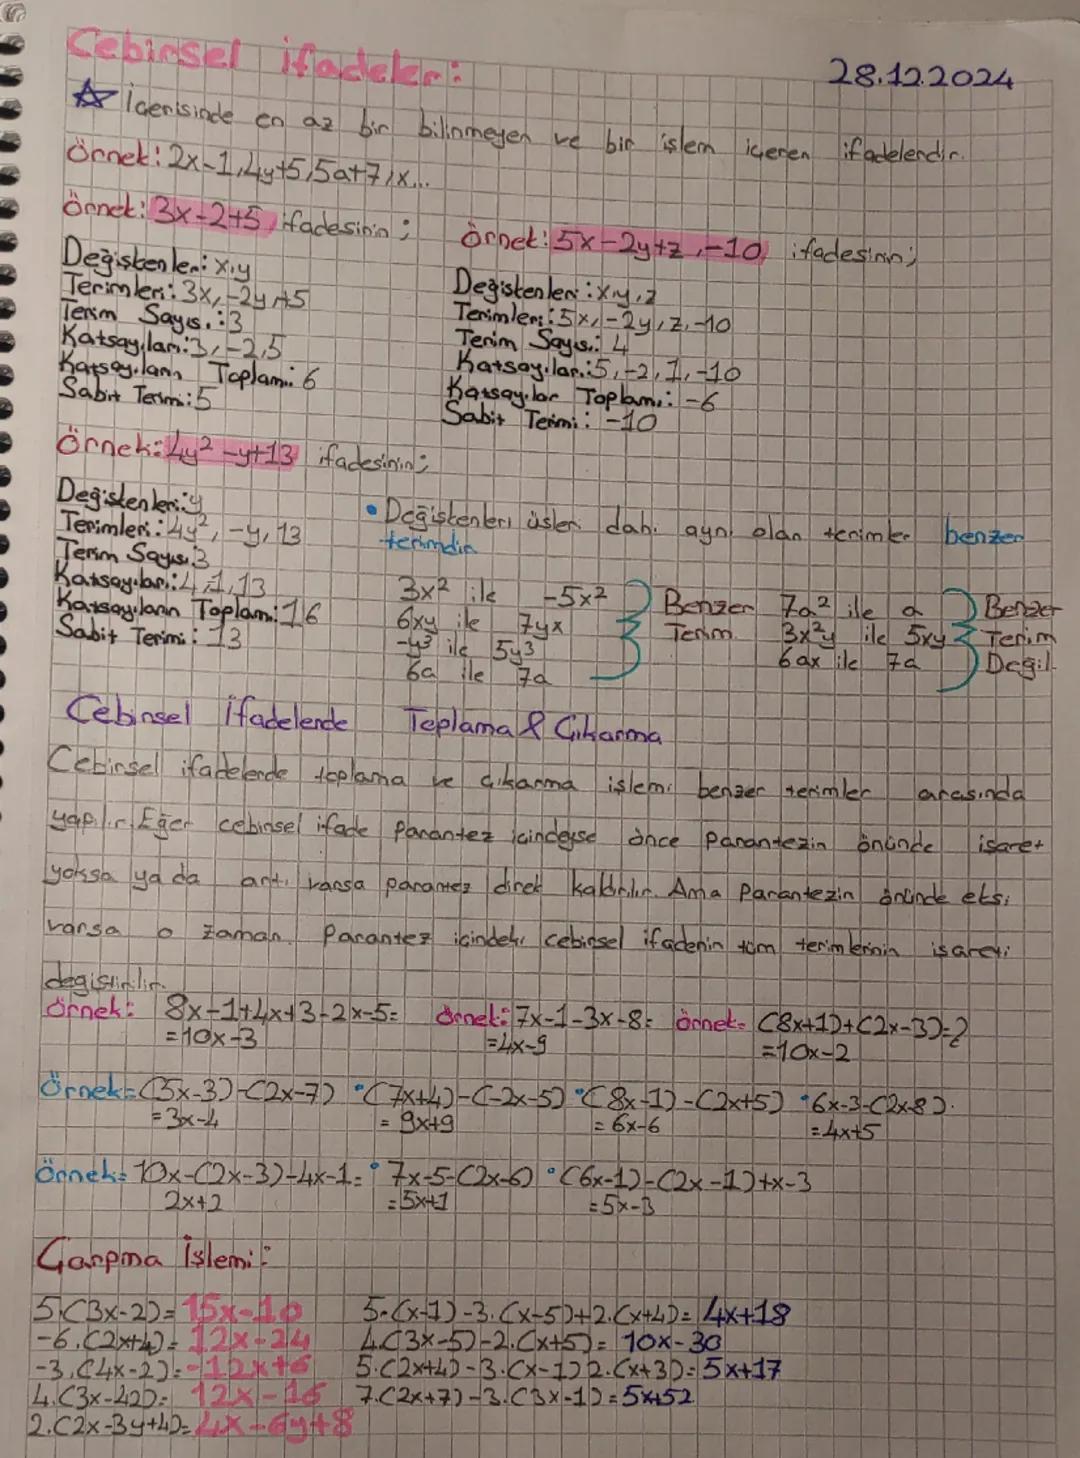 Cebirsel ifadeler:
28.12.2024
☆ İçerisinde en az bir bilinmeyen ve bir işlem içeren ifadelerdir.
Örnek: 2x-1,4y+5,5a+7,x...
Örnek: 3x-2+5, ifadesinin;
Değişkenler: x,y
Terimleri: 3x,-2y,+5
Terim Sayısı: 3
Katsayıları: 3,-2,5
Katsayıların Toplamı: 6
Sabit Terimi: 5
Örnek: 5x-2y+z,-10, ifadesinin;
Değişkenleri: x,y,z
Terimleri: 5x,-2y,z,-10
Terim Sayısı: 4
Katsayıları: 5,-2,1,-10
Katsayılar Toplamı: -6
Sabit Terimi: -10
Örnek: 4y²-y+13 ifadesinin;
Değişkenleri: y
Terimleri: 4y²,-y,13
Terim Sayısı 3
Katsayıları: 4,-1,13
Katsayıların Toplamı: 16
Sabit Terimi: 13
• Değişkenleri üsleri dahi aynı olan terimler benzer
terimdir
3x² ile -5x²
6xy ile 7yx
-y³ ile 5y³
6a ile 7a
Benzer
Terim
7a² ile a
3x²y ile 5xy
6ax ile 7a
Benzer
Terim
Değil.
Cebirsel İfadelerde Toplama & Çıkarma
Cebirsel ifadelerde toplama ve çıkarma işlemi benzer terimler arasında
yapılır. Eğer cebirsel ifade parantez içindeyse önce parantezin önünde işaret
yoksa ya da artı varsa parantez direk kaldırılır. Ama parantezin önünde eksi
varsa o zaman. Parantez içindeki cebirsel ifadenin tüm terimlerinin işareti
değiştirilir.
Örnek: 8x-1+4x+3-2x-5=
=10x-3
Örnek: 7x-1-3x-8=
=4x-9
Örnek= (8x+1)+(2x-3)=?
=10x-2
Örnek= (5x-3)-(2x-7) • (7x+4)-(-2x-5) • (8x-1)-(2x+5) • 6x-3-(2x-8).
=3x-4 = 9x+9 = 6x-6 =4x+5
Örnek= 10x-(2x-3)-4x-1= • 7x-5-(2x-6) • (6x-1)-(2x-1)+x-3
2x+2 =5x+1 =5x-3
Çarpma İşlemi:
5.(3x-2)=15x-10
-6.(2x+4)= 12x-24
-3.(4x-2)=-12x+6
4.(3x-42)= 12x-16
2.(2x-3y+4)=4x-6y+8
5.(x-1)-3.(x-5)+2.(x+4)= 4x+18
4.(3x-5)-2.(x+5)= 10x-30
5.(2x+4)-3.(x-1)2.(x+3)=5x+17
7.(2x+7)-3.(3x-1)=5x+52